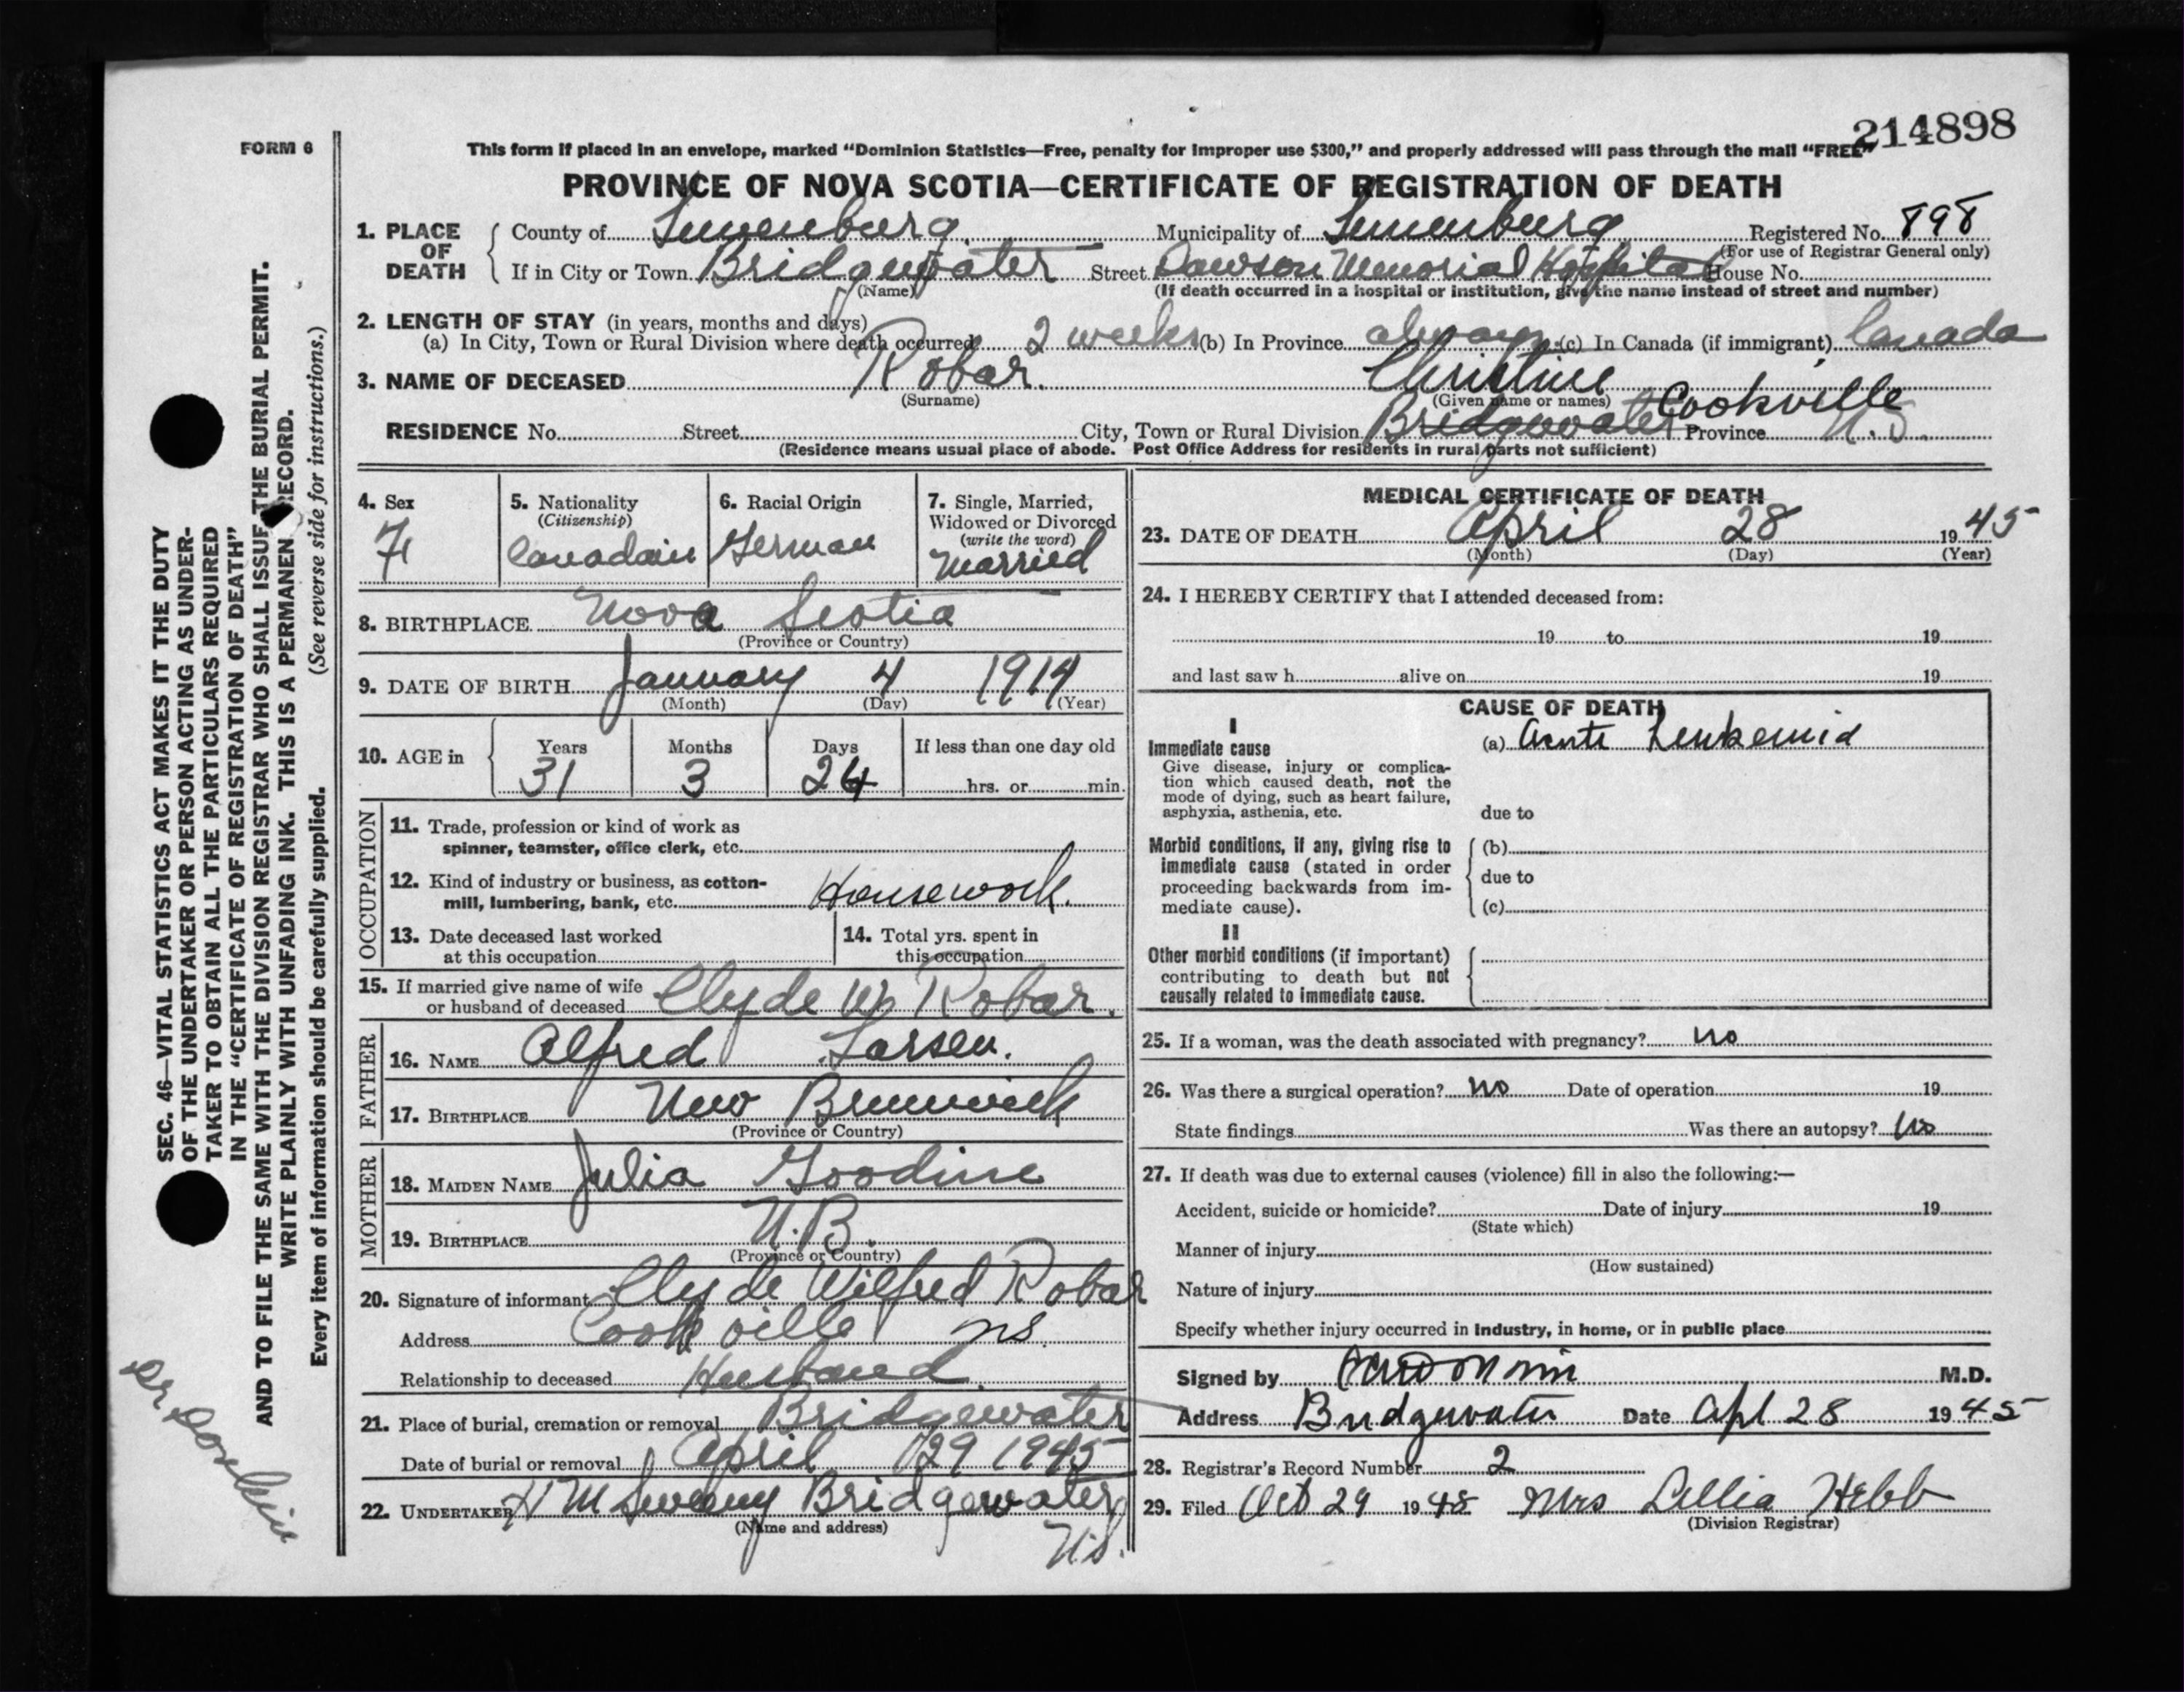 214898
FORM 6
This form if placed in an envelope, marked “Dominion Statistics—Free, penalty for improper use $300,” and properly addressed will pass through the mail “FREE”
PROVINCE OF NOVA SCOTIA—CERTIFICATE OF REGISTRATION OF DEATH
1. PLACE OF DEATH County of Lunenburg Municipality of Lunenburg Registered No. 898
(For use of Registrar General only)
If in City or Town Bridgewater Street Dawson Memorial Hospital House No.
(Name) (If death occurred in a hospital or institution, give the name instead of street and number)
2. LENGTH OF STAY (in years, months and days)
(a) In City, Town or Rural Division where death occurred 2 weeks (b) In Province always (c) In Canada (if immigrant) Canada
3. NAME OF DECEASED Robar. Christine
(Surname) (Given name or names)
Cookville
RESIDENCE No. Street City, Town or Rural Division Bridgewater Province N.S.
(Residence means usual place of abode. Post Office Address for residents in rural parts not sufficient)
4. Sex
F
5. Nationality
(Citizenship)
Canadain
6. Racial Origin
German
7. Single, Married,
Widowed or Divorced
(write the word)
Married
8. BIRTHPLACE Nova Scotia
(Province or Country)
9. DATE OF BIRTH January 4 1914
(Month) (Day) (Year)
10. AGE in Years Months Days If less than one day old
31 3 24 hrs. or min.
OCCUPATION
11. Trade, profession or kind of work as
spinner, teamster, office clerk, etc.
12. Kind of industry or business, as cotton-
mill, lumbering, bank, etc. Housework.
13. Date deceased last worked
at this occupation
14. Total yrs. spent in
this occupation
15. If married give name of wife
or husband of deceased Clyde W Robar.
FATHER
16. NAME Alfred Larsen.
17. BIRTHPLACE New Brunswick
(Province or Country)
MOTHER
18. MAIDEN NAME Julia Goodine
19. BIRTHPLACE N.B.
(Province or Country)
20. Signature of informant Clyde Wilfred Robar
Address Cookville NS.
Relationship to deceased Husband.
21. Place of burial, cremation or removal Bridgewater
Date of burial or removal April 29 1945
22. UNDERTAKER H M Sweeny Bridgewater
(Name and address)
N.S.
MEDICAL CERTIFICATE OF DEATH
23. DATE OF DEATH April 28 1945
(Month) (Day) (Year)
24. I HEREBY CERTIFY that I attended deceased from:
19 to 19
and last saw h alive on 19
CAUSE OF DEATH
I
Immediate cause (a) Acute Leukemia
Give disease, injury or complica-
tion which caused death, not the
mode of dying, such as heart failure,
asphyxia, asthenia, etc. due to
Morbid conditions, if any, giving rise to (b)
immediate cause (stated in order
proceeding backwards from im- due to
mediate cause). (c)
II
Other morbid conditions (if important)
contributing to death but not
causally related to immediate cause.
25. If a woman, was the death associated with pregnancy? no
26. Was there a surgical operation? no Date of operation 19
State findings Was there an autopsy? No
27. If death was due to external causes (violence) fill in also the following:—
Accident, suicide or homicide? Date of injury 19
(State which)
Manner of injury
(How sustained)
Nature of injury
Specify whether injury occurred in industry, in home, or in public place
Signed by M.D.
Address Bridgewater Date Apl 28 1945
28. Registrar's Record Number 2
29. Filed Oct 29 1945 Mrs Lellia Hebb
(Division Registrar)
SEC. 46—VITAL STATISTICS ACT MAKES IT THE DUTY
OF THE UNDERTAKER OR PERSON ACTING AS UNDER-
TAKER TO OBTAIN ALL THE PARTICULARS REQUIRED
IN THE “CERTIFICATE OF REGISTRATION OF DEATH”
AND TO FILE THE SAME WITH THE DIVISION REGISTRAR WHO SHALL ISSUE THE BURIAL PERMIT.
WRITE PLAINLY WITH UNFADING INK. THIS IS A PERMANEN RECORD.
Every item of information should be carefully supplied. (See reverse side for instructions.)
Dr